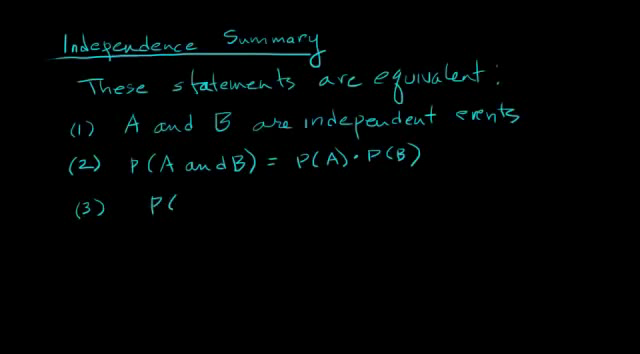 Independence Summary
These statements are equivalent:
(1) A and B are independent events
(2) P(A and B) = P(A) • P(B)
(3) P(